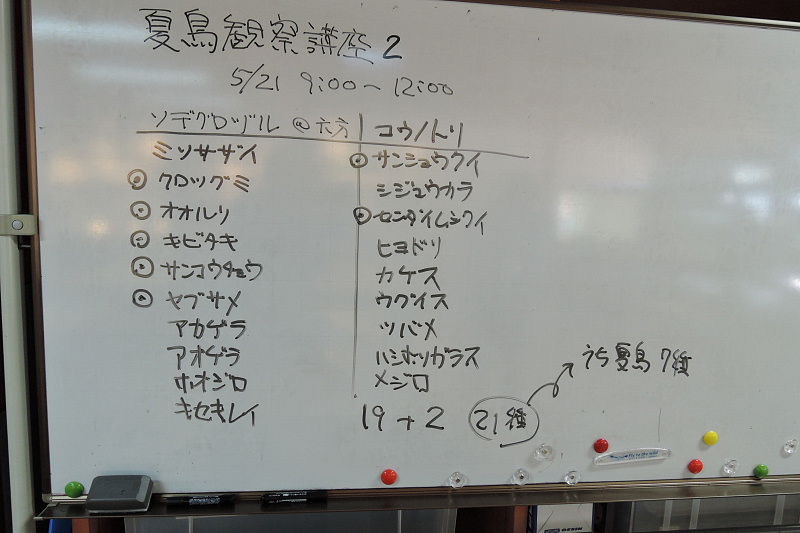 夏鳥観察講座2
5/21 9:00〜12:00
ソデグロヅル @六方
ミソサザイ
◎クロツグミ
◎オオルリ
◎キビタキ
◎サンコウチョウ
◎ヤブサメ
アカゲラ
アオゲラ
ホオジロ
キセキレイ
コウノトリ
◎サンショウクイ
シジュウカラ
◎センダイムシクイ
ヒヨドリ
カケス
ウグイス
ツバメ
ハシボソガラス
メジロ
19+2 21種
うち夏鳥7種